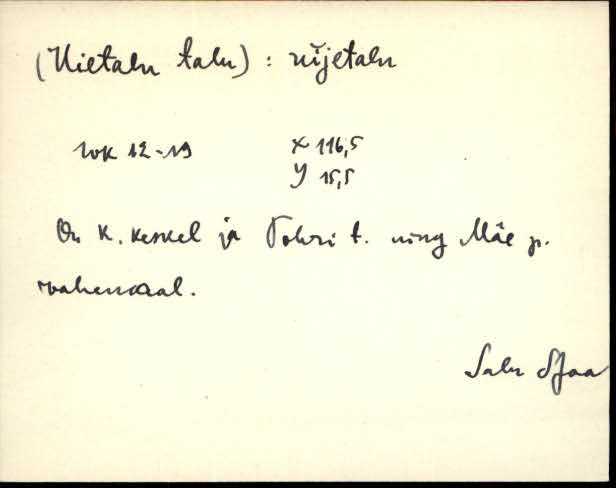 (Uietalu talu) : uijetalu
WK 12-19 X 116,5
Y 15,5
On k. keskel ja Tohri t. ning Mäe p.
vahemaal.
Salu